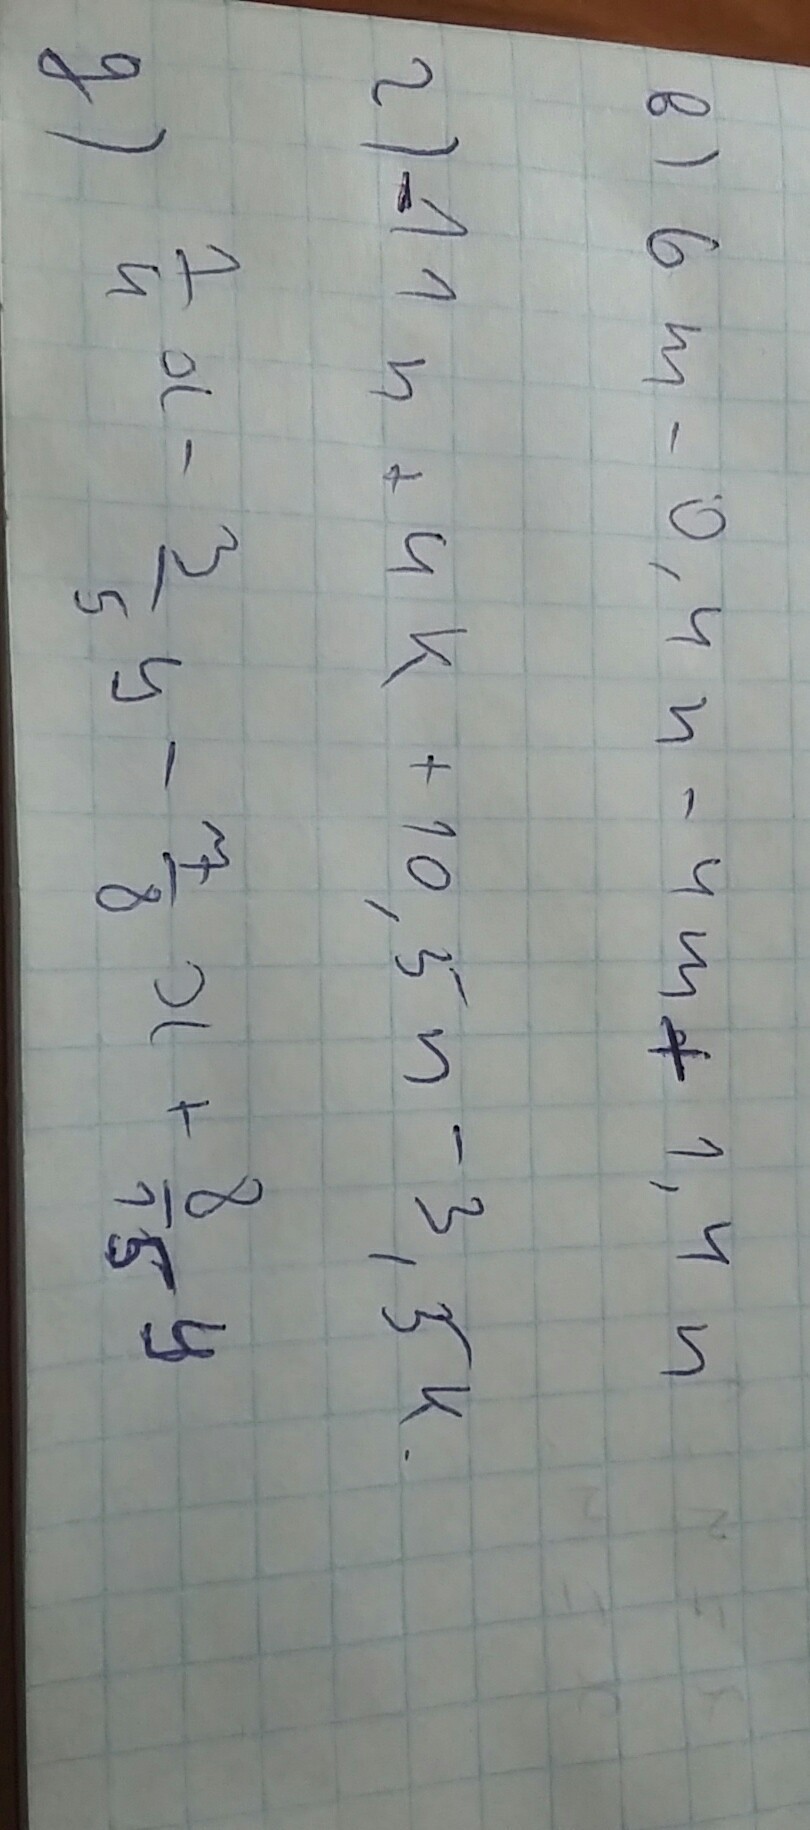 в) 6m - 0,4n - 4m + 1,4n
г) -11n + 4k + 10,5n - 3,5k.
д) 1/4 x - 3/5 y - 7/8 x + 8/15 y